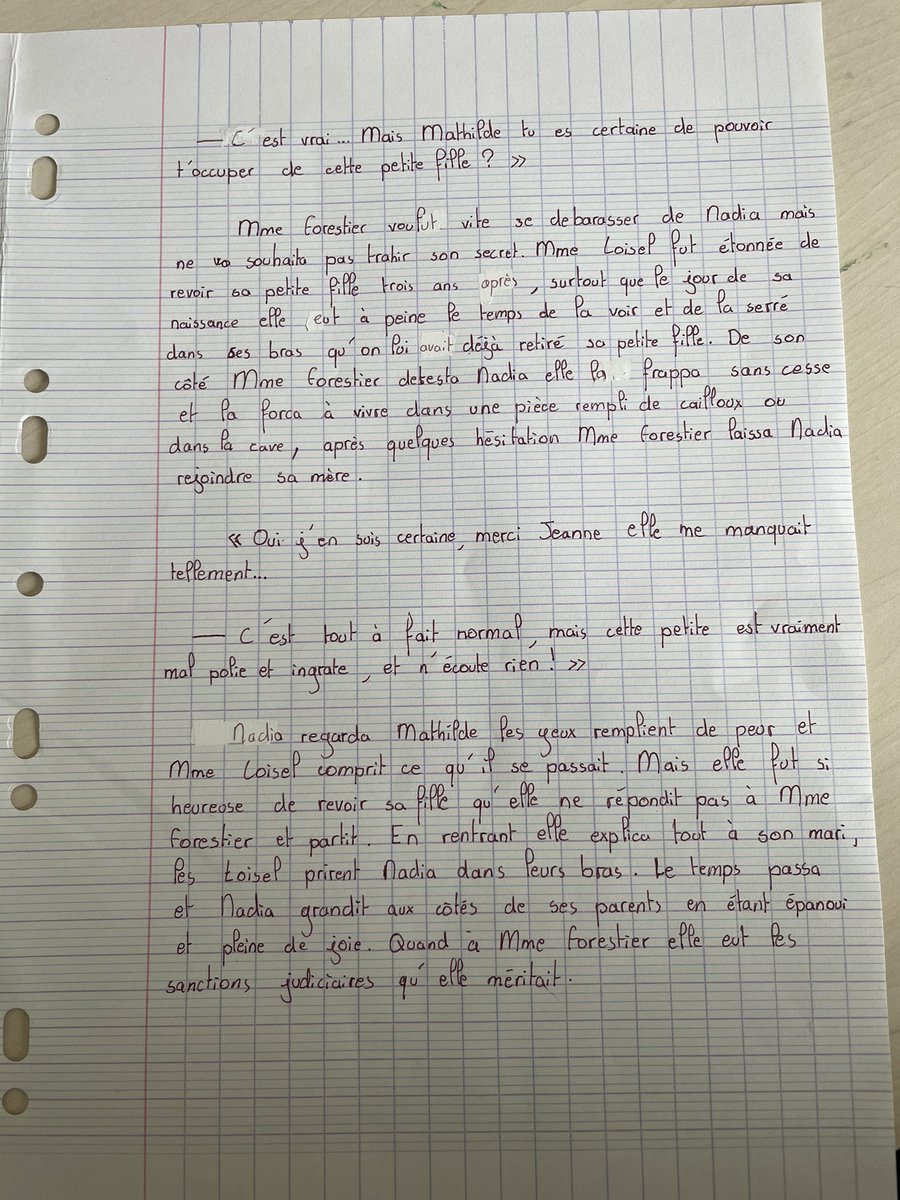 — C'est vrai... Mais Mathilde tu es certaine de pouvoir
t'occuper de cette petite fille ? »
Mme Forestier voulut vite se debarasser de Nadia mais
ne souhaita pas trahir son secret. Mme Loisel fut étonnée de
revoir sa petite fille trois ans après, surtout que le jour de sa
naissance elle eut à peine le temps de la voir et de la serré
dans ses bras qu'on lui avait déjà retiré sa petite fille. De son
côté Mme Forestier detesta Nadia elle la frappa sans cesse
et la forca à vivre dans une pièce rempli de cailloux ou
dans la cave, après quelques hésitation Mme Forestier laissa Nadia
rejoindre sa mère.
« Oui j'en suis certaine, merci Jeanne elle me manquait
tellement...
— C'est tout à fait normal, mais cette petite est vraiment
mal polie et ingrate, et n'écoute rien ! »
Nadia regarda Mathilde les yeux remplient de peur et
Mme Loisel comprit ce qu'il se passait. Mais elle fut si
heureuse de revoir sa fille qu'elle ne répondit pas à Mme
Forestier et partit. En rentrant elle explica tout à son mari,
les Loisel prirent Nadia dans leurs bras. Le temps passa
et Nadia grandit aux côtés de ses parents en étant épanoui
et pleine de joie. Quand à Mme Forestier elle eut les
sanctions judiciaires qu'elle méritait.